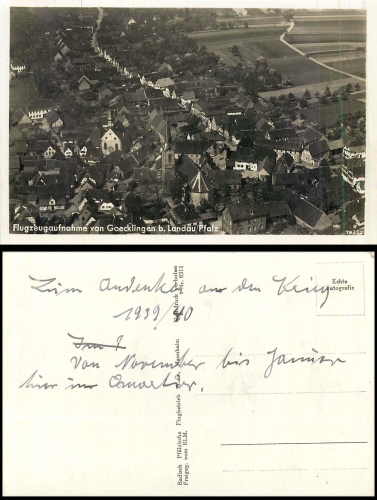 Flugzeugaufnahme von Goecklingen b. Landau Pfalz
Zum Andenken an den Krieg
1939/40
Von November bis Januar
hier im Quartier.
Echte
Fotografie
Badisch Pfälzische Flugbetrieb
Mannheim
Freigeg. vom RLM.